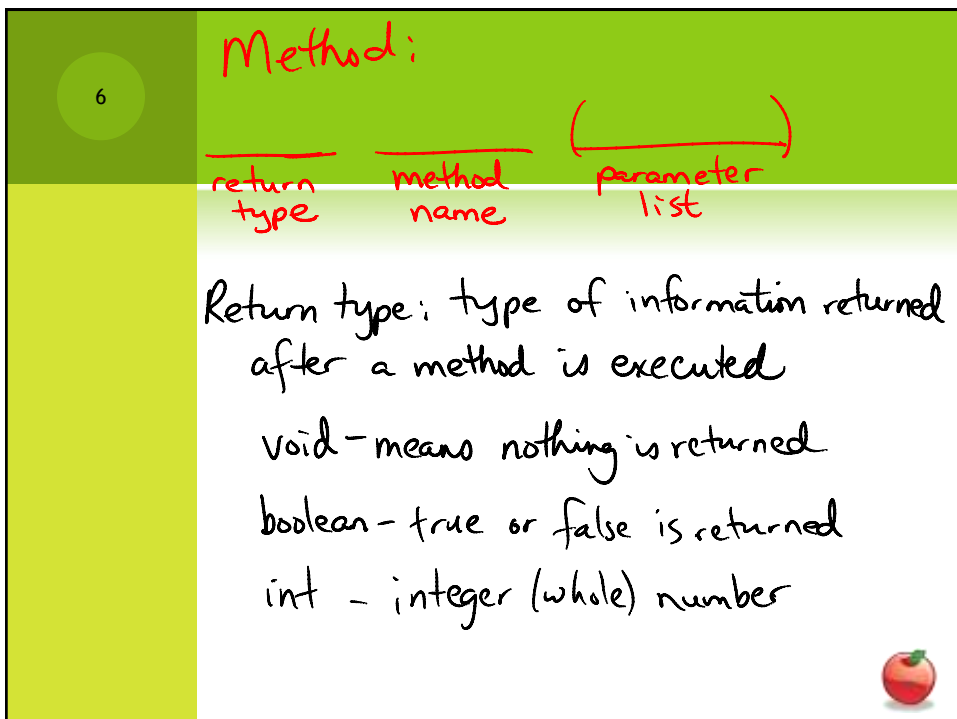 6
Method:
( )
return type
method name
parameter list
Return type: type of information returned
after a method is executed
void - means nothing is returned
boolean - true or false is returned
int - integer (whole) number